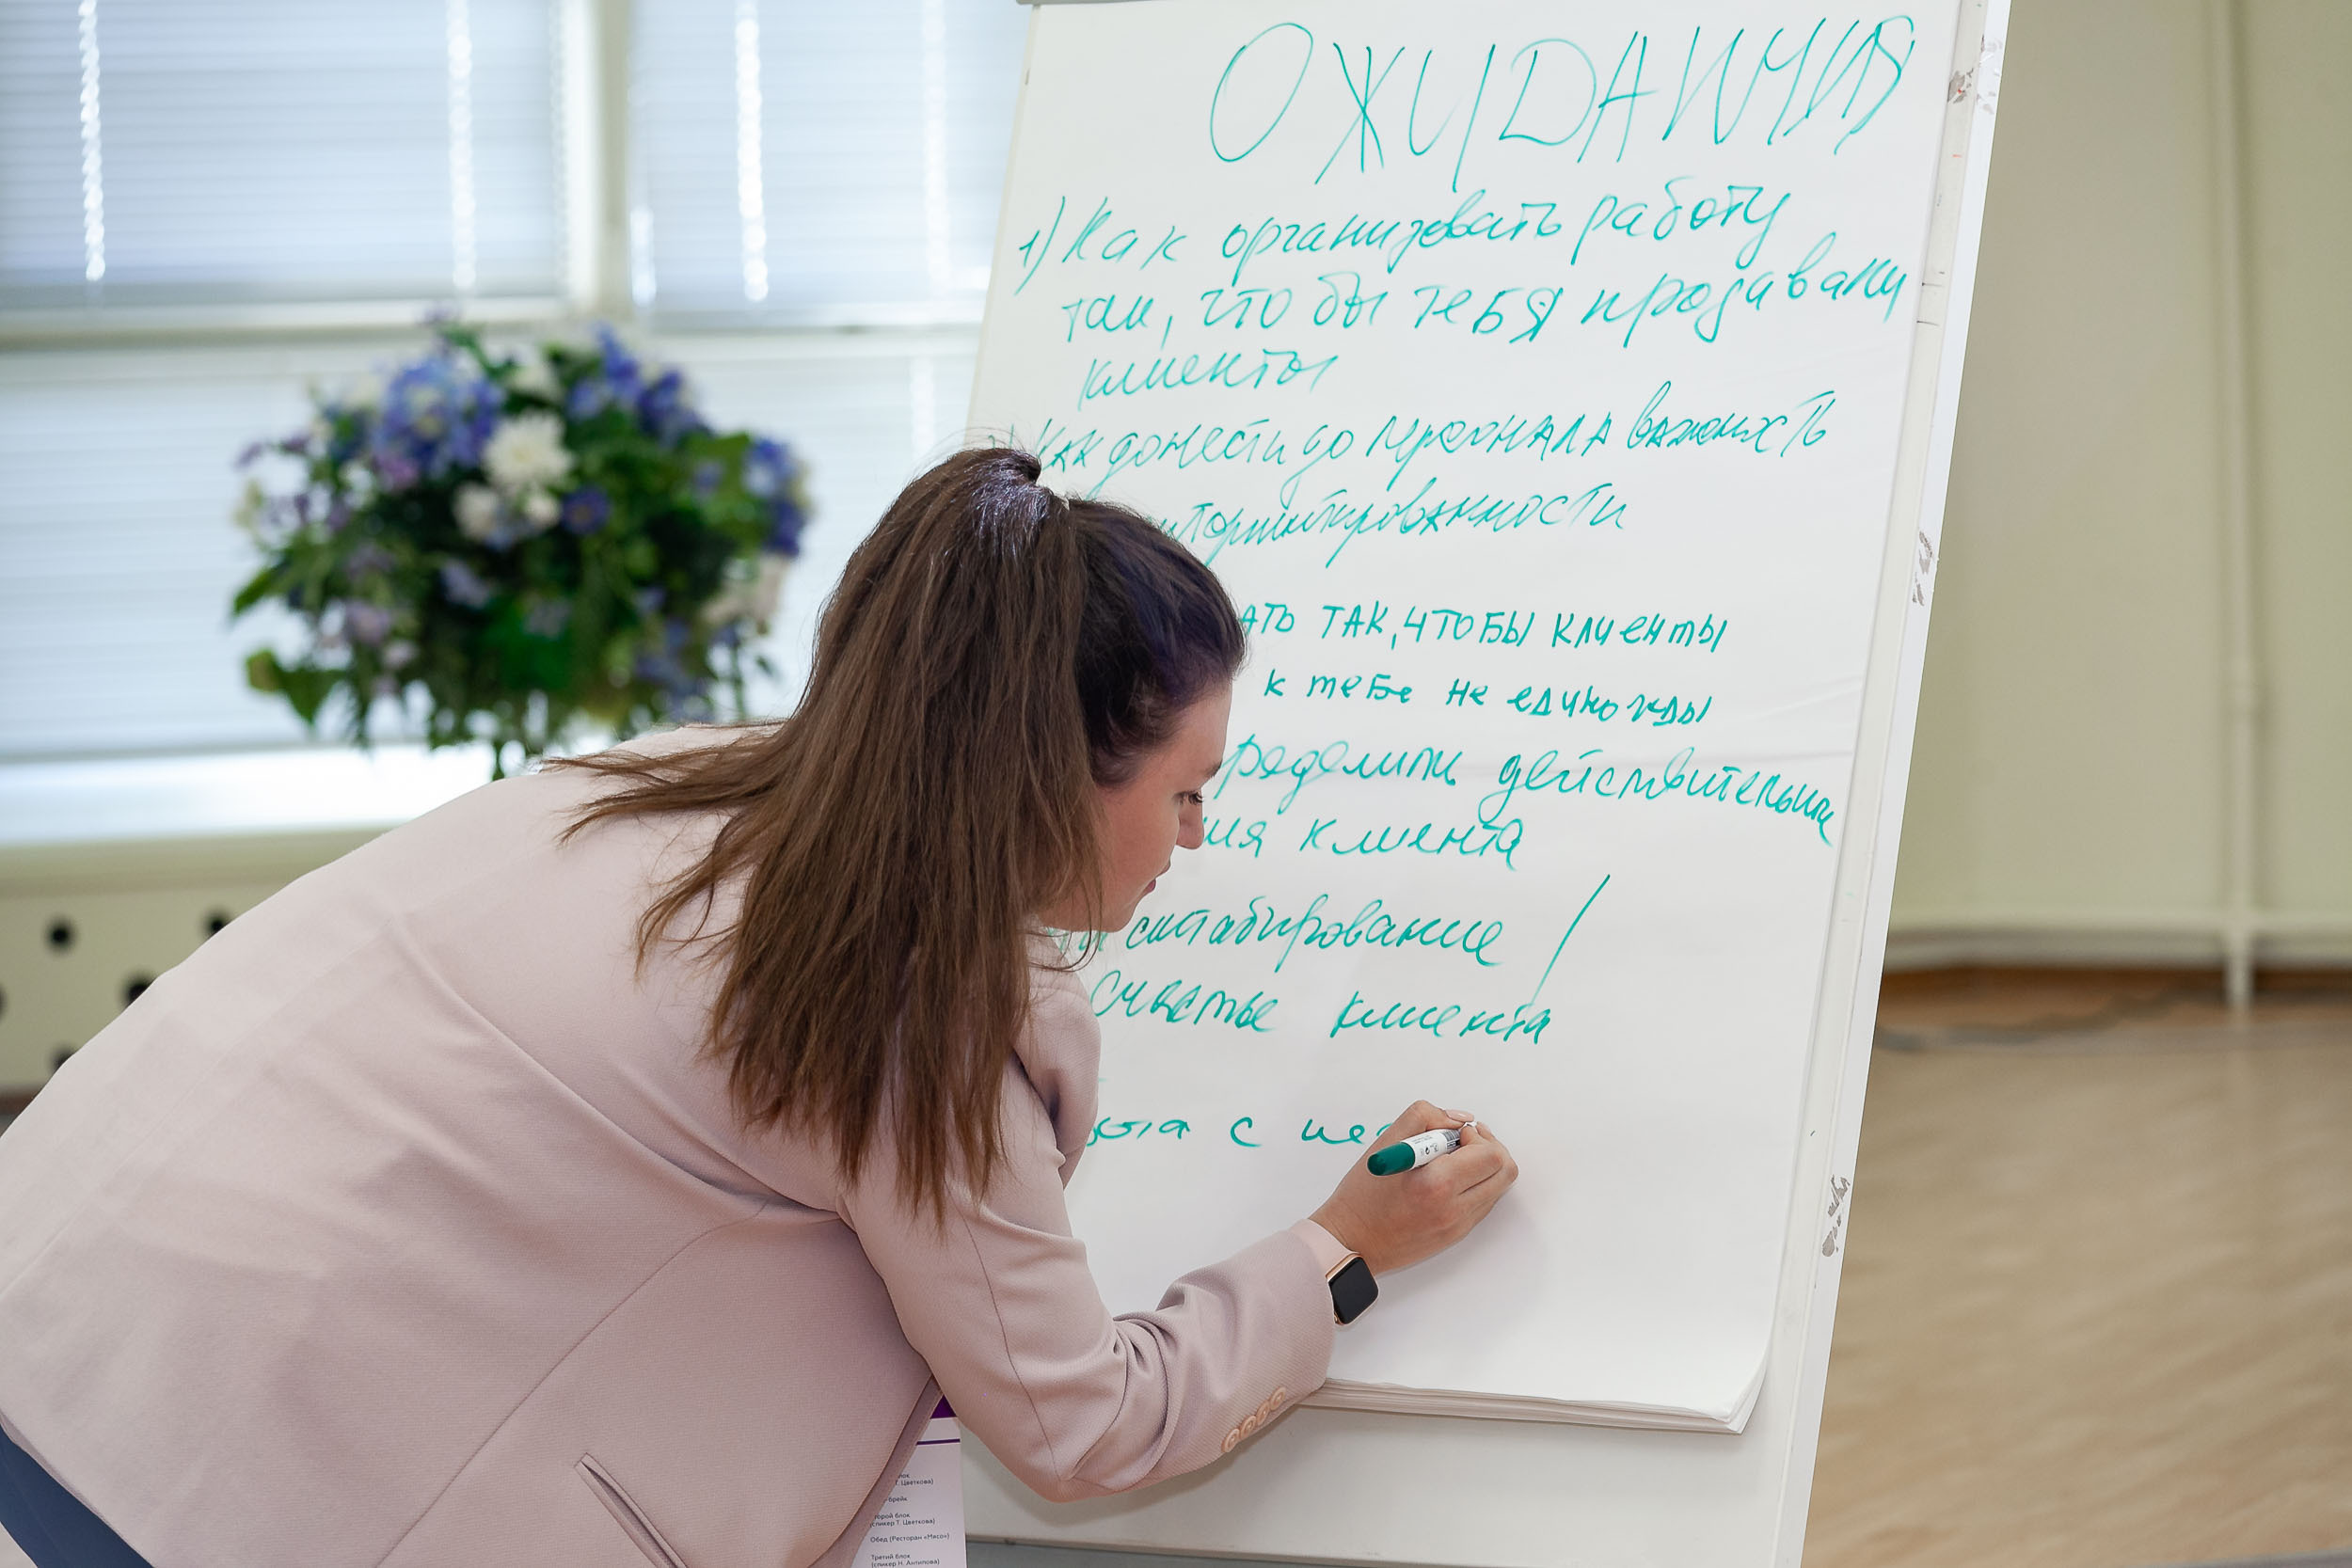 ОЖИДАНИЯ
1) Как организовать работу
так, что бы тебя продавали
клиенты
Как донести до персонала важность
ать так, чтобы клиенты
к тебе не единожды
ределить действительные
ия клиента
счастье клиента
с
лок
Т. Цветкова)
брейк
торой блок
(спикер Т. Цветкова)
Обед (Ресторан «Мясо»)
Третий блок
(спикер Н. Антипова)